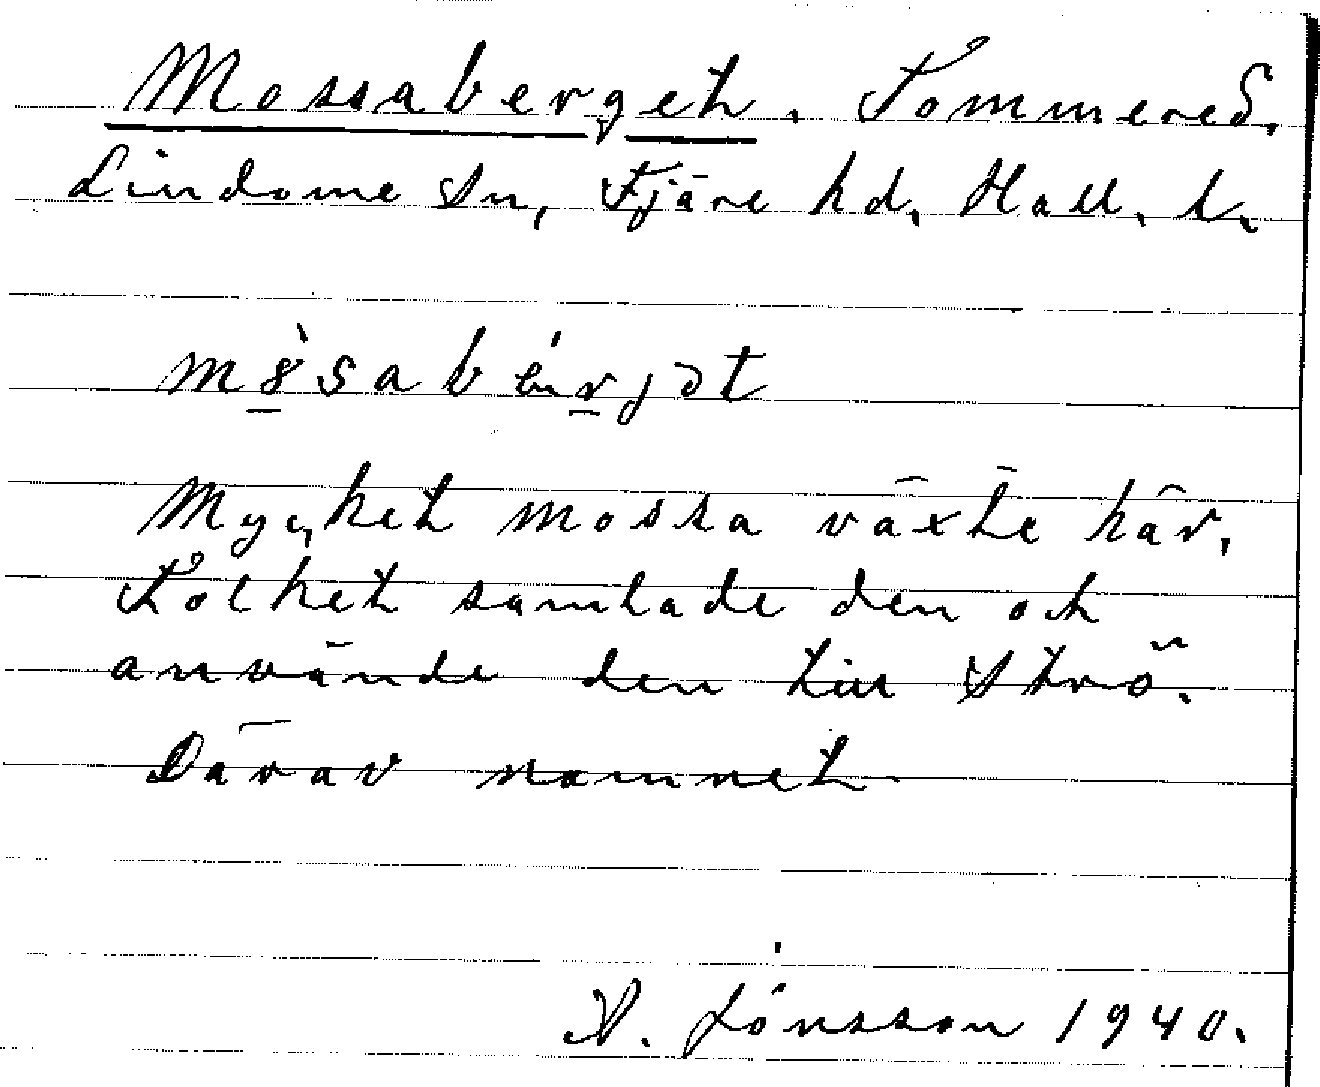 Mossaberget. Tommered.
Lindome sn, Fjäre hd, Hall. l.
Mycket mossa växte här,
Folket samlade den och
använde den till strö.
Därav namnet
A. Jönsson 1940.